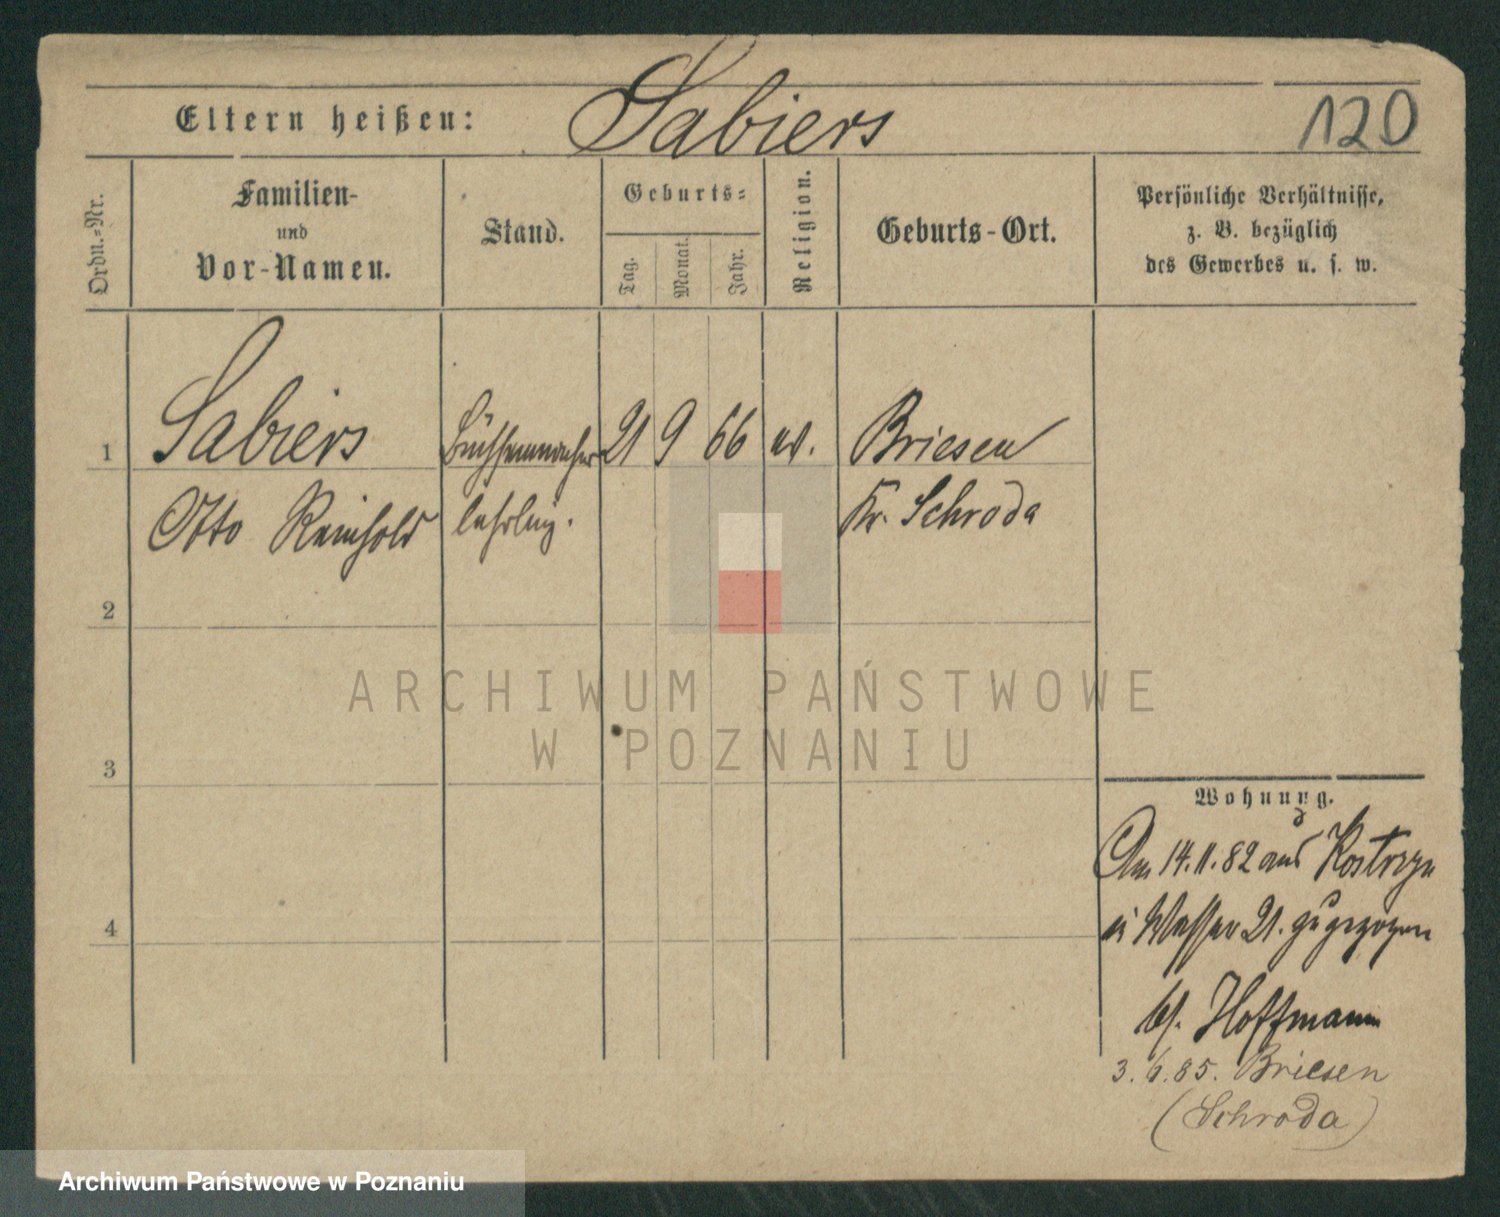 Eltern heißen: Sabiers 120
Ordn.-Nr.
Familien-
und
Vor-Namen.
Stand.
Geburts-
Tag. Monat. Jahr.
Religion.
Geburts-Ort.
Persönliche Verhältnisse,
z. B. bezüglich
des Gewerbes u. s. w.
1 Sabiers Büchsenmacher 21 9 66 ev. Briesen
Otto Reinhold lehrling. Kr. Schroda
2
3
4
ARCHIWUM PAŃSTWOWE
W POZNANIU
Wohnung.
Am 14.11.82 aus Kostrzyn
21. zugezogen
bei Hoffmann
3.6.85. Briesen
(Schroda)
Archiwum Państwowe w Poznaniu